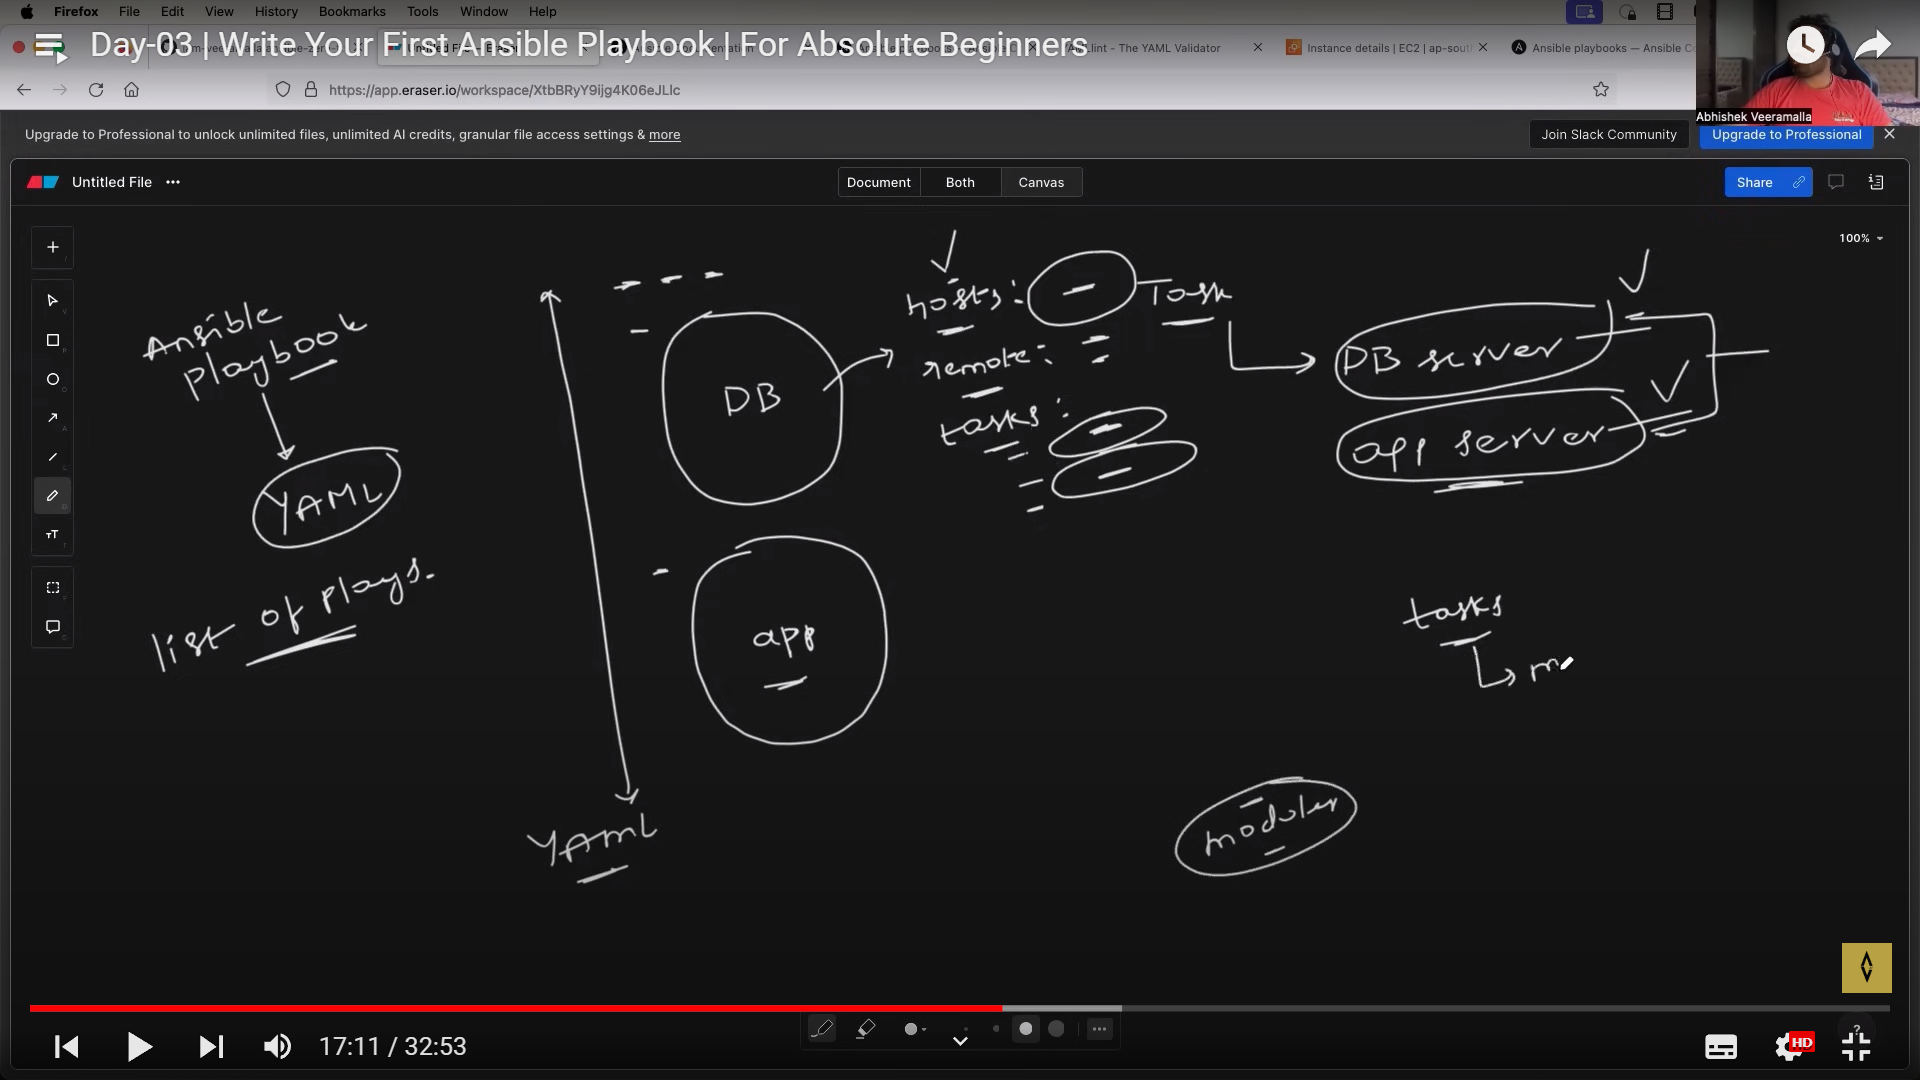 Firefox File Edit View History Bookmarks Tools Window Help
Day-03 | Write Your First Ansible Playbook | For Absolute Beginners
lint - The YAML Validator
Instance details | EC2 | ap-sout
Ansible playbooks — Ansible Co
https://app.eraser.io/workspace/XtbBRyY9ijg4K06eJLIc
Abhishek Veeramalla
Upgrade to Professional to unlock unlimited files, unlimited AI credits, granular file access settings & more
Join Slack Community
Upgrade to Professional
Untitled File
Document Both Canvas
Share
100%
Ansible
playbook
YAML
list of plays.
- - -
- DB
- app
YAML
hosts: - Task
remote:
tasks:
DB server
app server
tasks
m
modules
17:11 / 32:53
HD